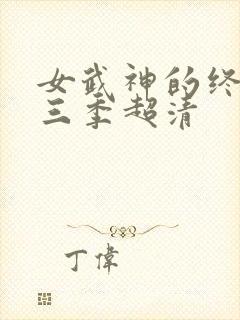 女武神的终
三季超清
丁偉